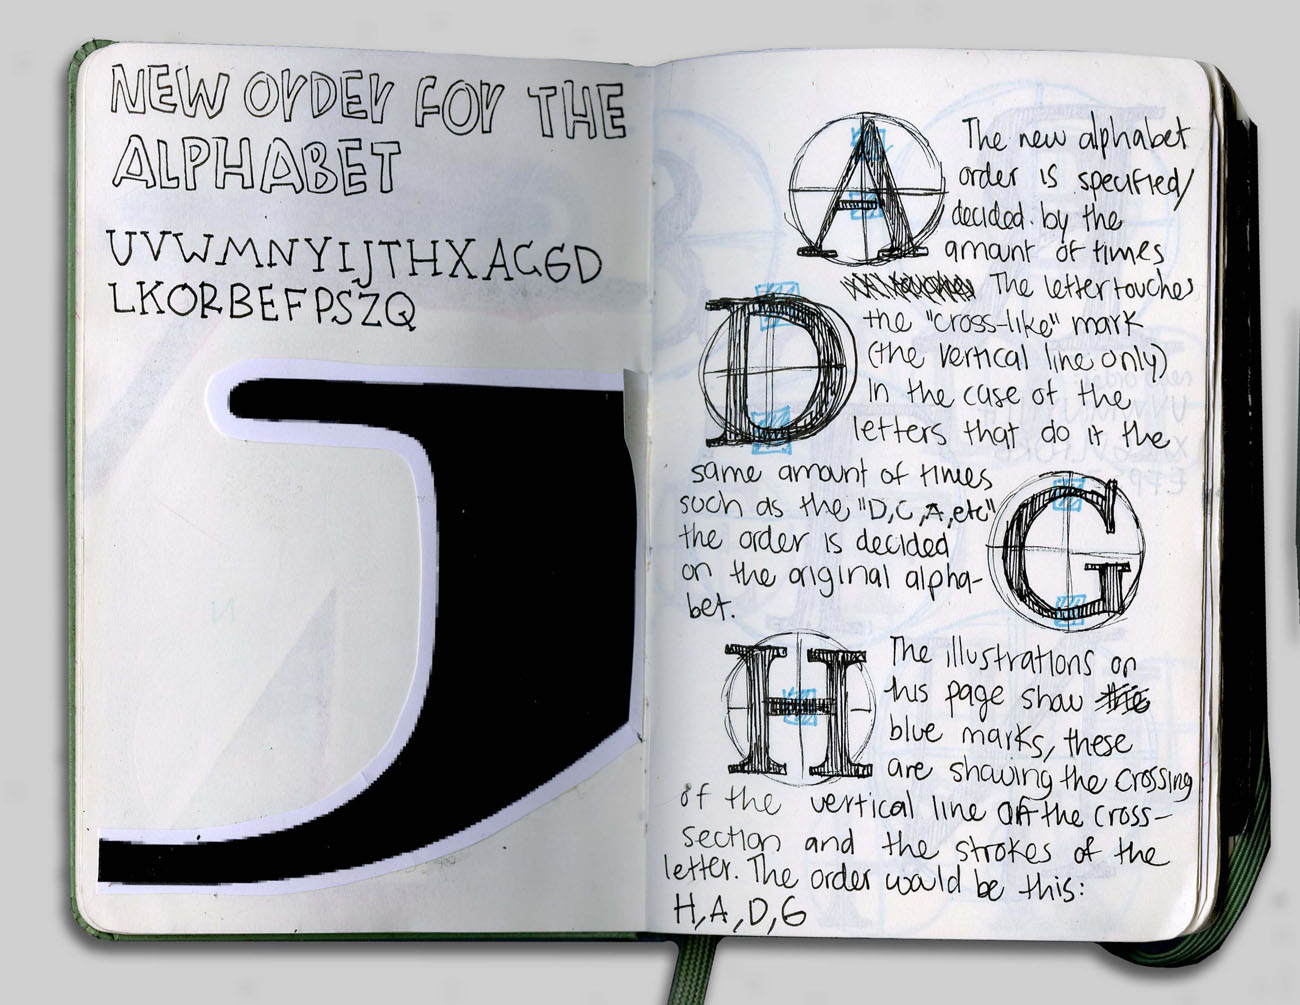 NEW OrDEr FOr THE
ALPHABET
UVWMNYIJTHXACGD
LKORBEFPSZQ
A
The new alphabet
order is specified/
decided by the
amount of times
The letter touches
the "cross-like" mark
(the vertical line only)
In the case of the
letters that do it the
D
same amount of times
such as the "D,C,A,etc"
the order is decided
on the original alpha-
bet.
G
H
The illustrations on
this page show
blue marks, these
are showing the crossing
of the vertical line on the cross-
section and the strokes of the
letter. The order would be this:
H,A,D,G